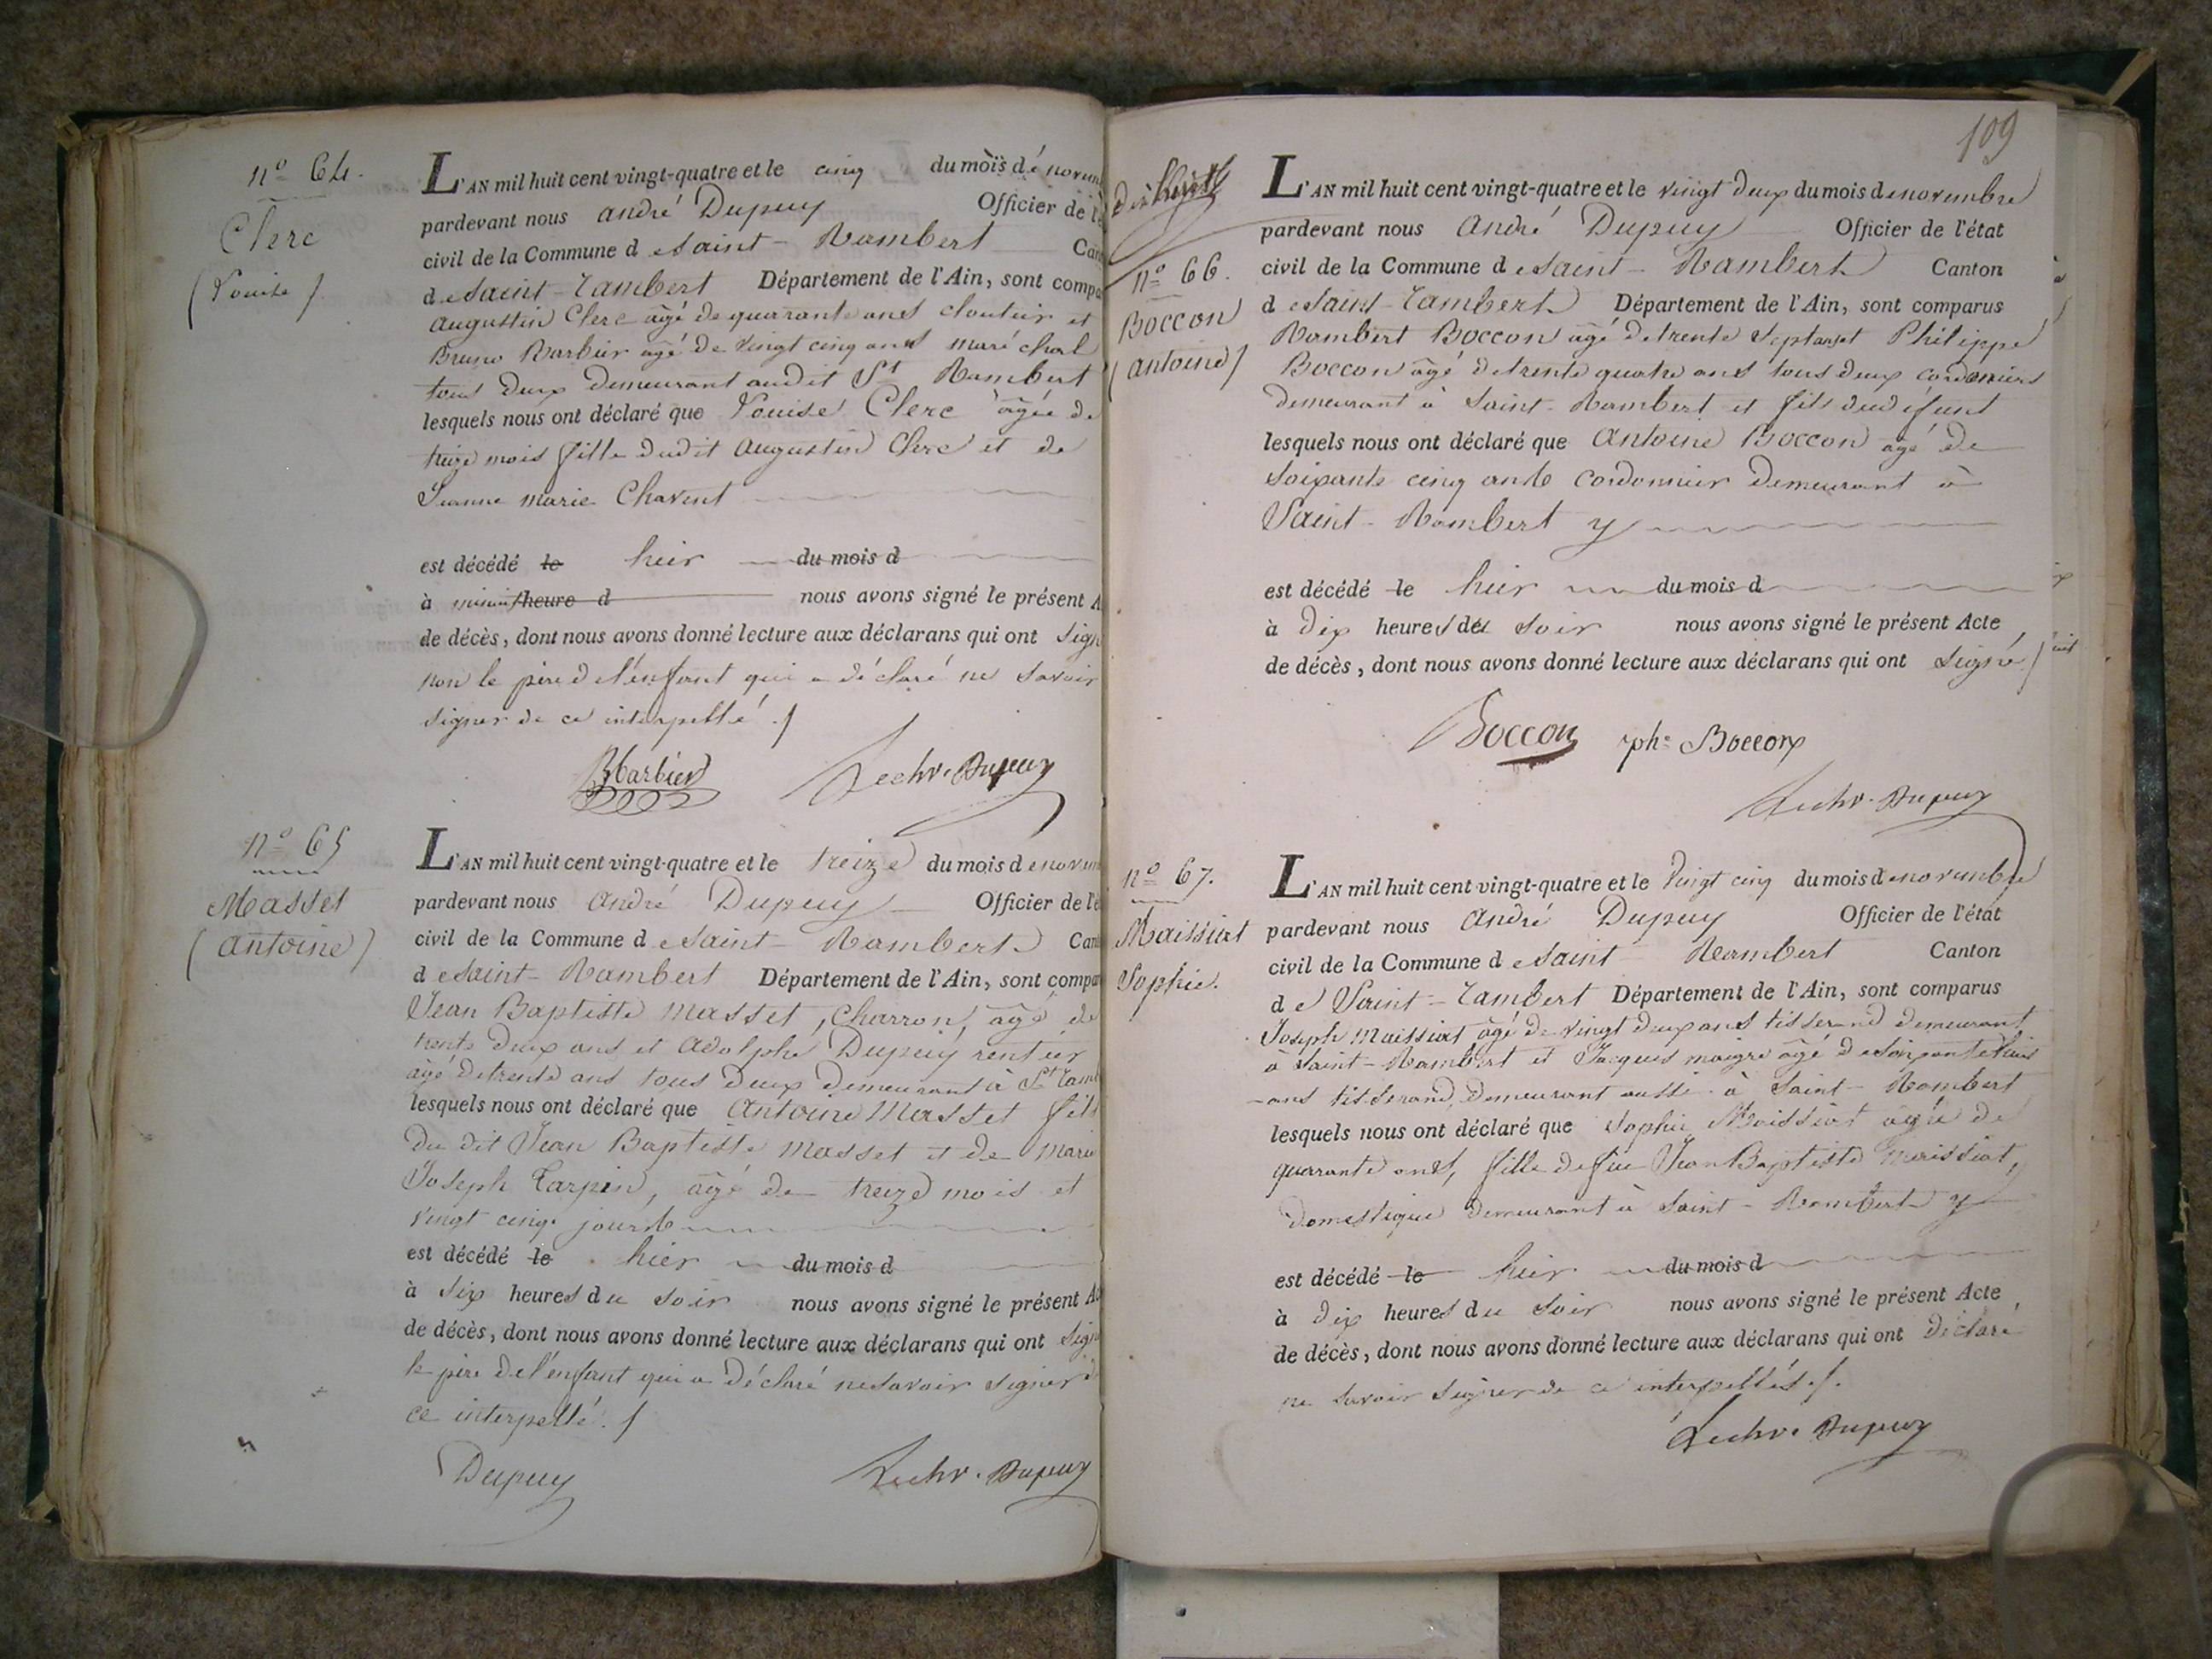 nº 64.
Clerc
(Louise)
L'AN mil huit cent vingt-quatre et le cinq du mois de novem
pardevant nous andré Dupuy Officier de l'é
civil de la Commune de Saint-Rambert Can
de Saint-Rambert Département de l'Ain, sont compa
augustin Clerc âgé de quarante ans cloutier et
Bruno Barbier âgé de vingt cinq ans maréchal
tous deux demeurant audit St Rambert
lesquels nous ont déclaré que Louise Clerc âgée de
treize mois fille dudit augustin Clerc et de
Jeanne marie Chavent
est décédé le hier du mois d
à minuit heure d nous avons signé le présent A
de décès, dont nous avons donné lecture aux déclarans qui ont sign
non le père de l'enfant qui a déclaré ne savoir
signer de ce interpellé ./
BBarbier Dupuy
nº 65
Masset
(antoine)
L'AN mil huit cent vingt-quatre et le treize du mois de novem
pardevant nous andré Dupuy Officier de l'é
civil de la Commune de Saint-Rambert Can
de Saint-Rambert Département de l'Ain, sont compa
Jean Baptiste Masset, Charron, âgé de
trente deux ans et Adolphe Dupuy rentier
âgé de trente ans tous deux demeurant à St Ramb
lesquels nous ont déclaré que Antoine Masset fils
du dit Jean Baptiste Masset et de Marie
Joseph Tarpin, âgé de treize mois et
vingt cinq jours
est décédé le hier du mois d
à six heures du soir nous avons signé le présent Ac
de décès, dont nous avons donné lecture aux déclarans qui ont sign
le père de l'enfant qui a déclaré ne savoir signer de
ce interpellé ./
Dupuy Dupuy
109
nº 66.
Boccon
(antoine)
L'AN mil huit cent vingt-quatre et le vingt deux du mois de novembre
pardevant nous André Dupuy Officier de l'état
civil de la Commune de Saint-Rambert Canton
de Saint-Rambert Département de l'Ain, sont comparus
Rambert Boccon âgé de trente sept ans et Philippe
Boccon âgé de trente quatre ans tous deux cordonniers
demeurant à Saint-Rambert et fils du défunt
lesquels nous ont déclaré que Antoine Boccon âgé de
soixante cinq ans cordonnier demeurant à
Saint-Rambert y
est décédé le hier du mois d
à dix heures du soir nous avons signé le présent Acte
de décès, dont nous avons donné lecture aux déclarans qui ont signé ./
Boccon phe Boccon
Dupuy
nº 67.
Maissiat
Sophie.
L'AN mil huit cent vingt-quatre et le vingt cinq du mois de novembre
pardevant nous André Dupuy Officier de l'état
civil de la Commune de Saint-Rambert Canton
de Saint-Rambert Département de l'Ain, sont comparus
Joseph Maissiat âgé de vingt deux ans tisserand demeurant
à Saint-Rambert et Jacques maigre âgé de soixante huit
ans tisserand, demeurant aussi à Saint-Rambert
lesquels nous ont déclaré que Sophie Maissiat âgée de
quarante ans, fille de feu Jean Baptiste Maissiat,
domestique demeurant à Saint-Rambert y
est décédé le hier du mois d
à dix heures du soir nous avons signé le présent Acte
de décès, dont nous avons donné lecture aux déclarans qui ont déclaré
ne savoir signer de ce interpellés ./.
Dupuy